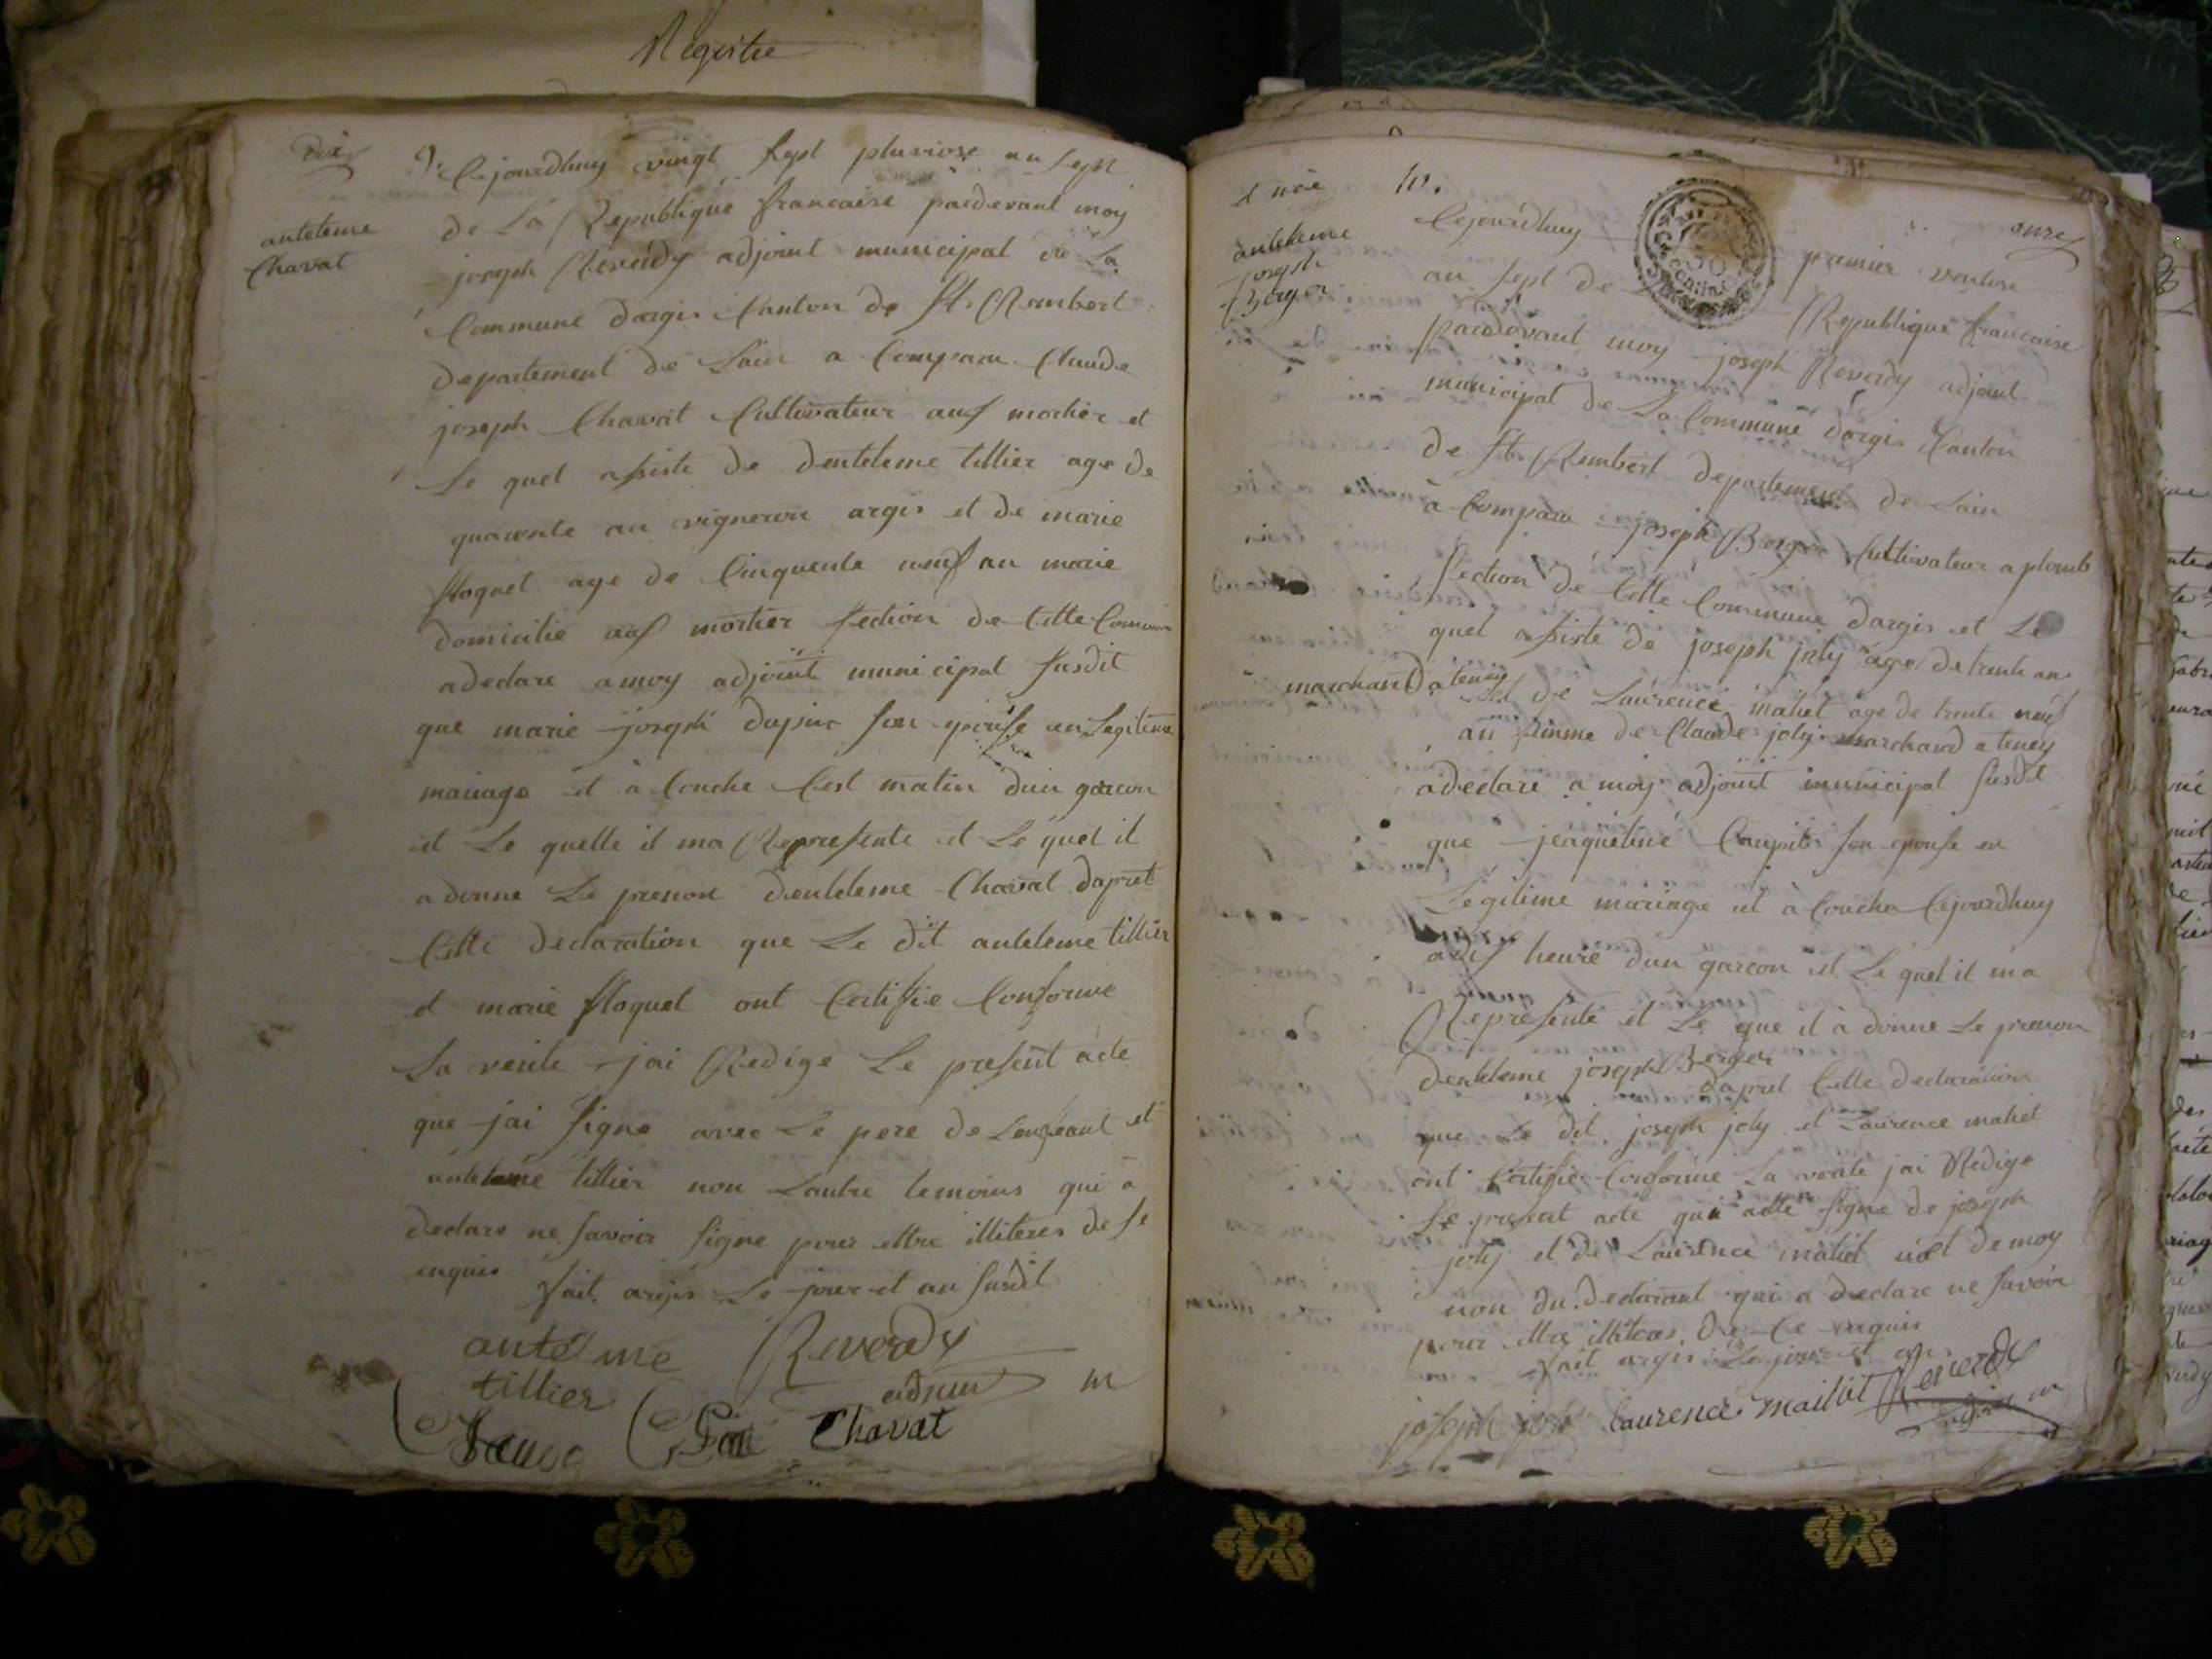 Registre
dix
9.
Cejourdhuy vingt sept pluviose an sept
anteleme
Chavat
de La Republique francaise pardevant moy
joseph Reverdy adjoint municipal de La
Commune dargis Canton de St. Rembert
departement de Lain a Comparu Claude
joseph Chavat Cultivateur aus mortier et
Le quel assiste de denteleme tillier age de
quarente an vigneron argis et de marie
floquet age de Cinquente neuf an marie
domicilie aus mortier section de Cette Commune
a declare a moy adjoint municipal susdit
que marie joseph dupuis son epouse en Legitime
mariage et à Couche Cest matin dun garcon
et Le quelle il ma Represente et Le quel il
a donne Le prenom denteleme Chavat dapret
Cette declaration que Le dit anteleme tillier
et marie floquet ont Certifie Conforme
La verite jai Redige Le present acte
que jai signe avec Le pere de Lenfeant et
anteleme tillier non Lautre temoins qui a
declare ne savoir signe pour ettre illiteres de se
enquis
fait argis Le jour et an susdit
antelme Reverdy
tillier adjoint m
Chavat
onze
et née
10.
Cejourdhuy premier ventose
anteleme
joseph
Berger
an sept de Republique francaise
pardevant moy joseph Reverdy adjoint
municipal de La Commune dargis Canton
de St Rembert departement de Lain
a Comparu joseph Berger Cultivateur a plomb
section de Cette Commune dargis et Le
quel assiste de joseph joly age de trente an
marchand a teney et de Laurence maliet age de trente neuf
an femme de Claude joly marchand a teney
a declare a moy adjoint municipal susdit
que jeaqueline son epouse en
Legitime mariage et à Couche Cejourdhuy
a dis heure dun garcon et Le quel il ma
Represente et Le que il à donne Le prenom
denteleme joseph Berger
dapret Cette declaration
que Le dit joseph joly et Laurence maliet
ont Certifie Conforme La verite jai Redige
Le present acte qui a ette signe de joseph
joly et de Laurence maliet et de moy
non du declarant qui a declare ne savoir
pour ettre illiteres de Ce enquis
fait argis Le jour et an
joseph joly Laurence mailiet Reverdy